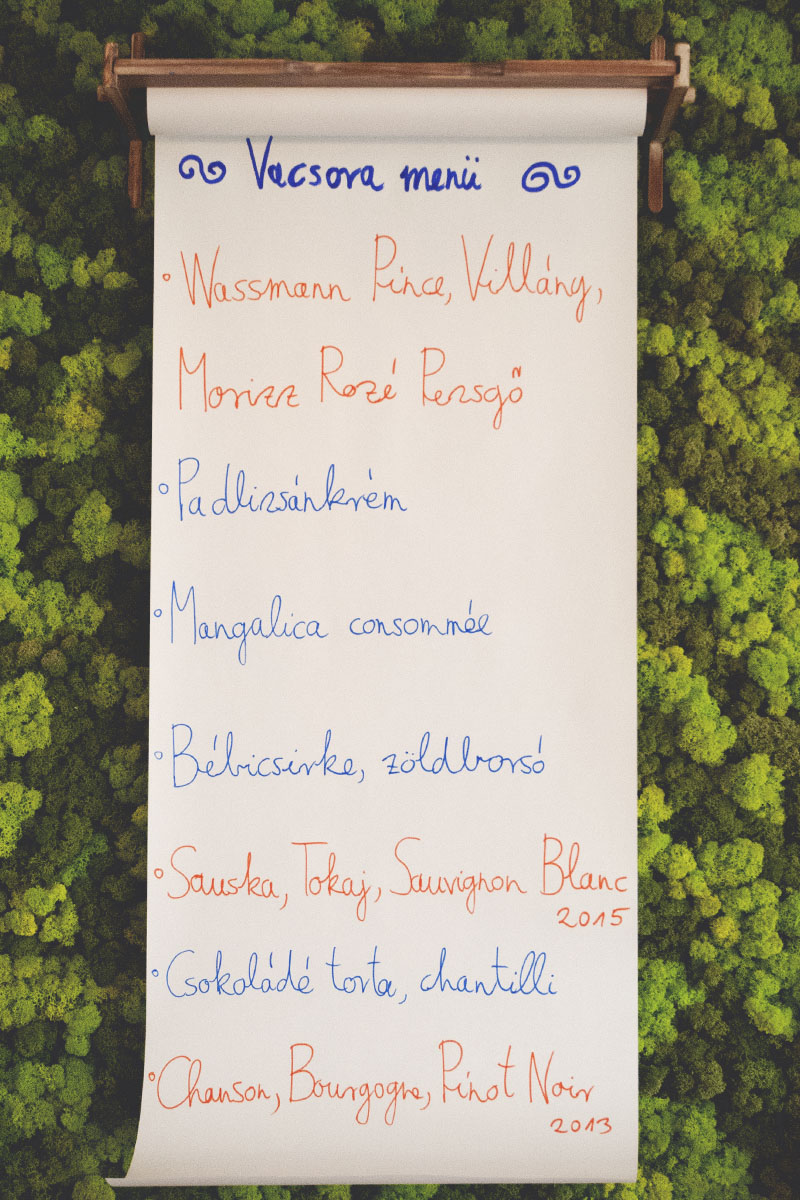 Vacsora menü
° Wassmann Pince, Villány,
Morizz Rozé Pezsgő
° Padlizsánkrém
° Mangalica consommée
° Bébicsirke, zöldborsó
° Sauska, Tokaj, Sauvignon Blanc
2015
° Csokoládé torta, chantilli
° Chanson, Bourgogne, Pinot Noir
2013